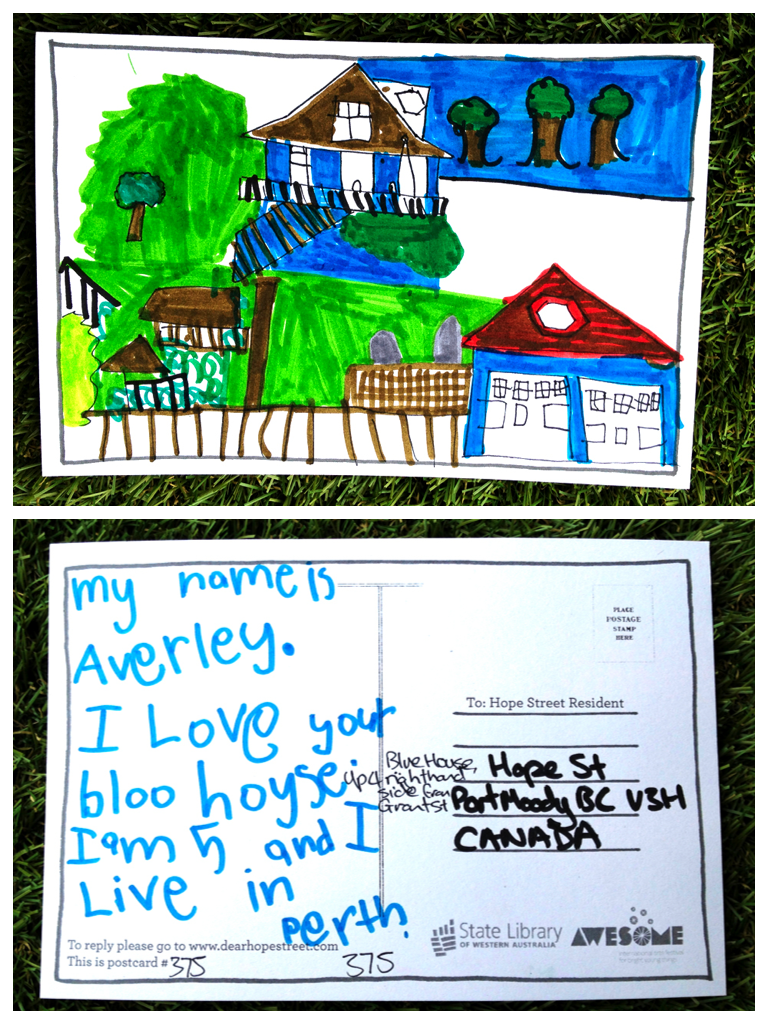 my name is
Averley.
I Love your
bloo hoyse.
I am 5 and I
Live in
perth
To reply please go to www.dearhopestreet.com
This is postcard # 375
375
PLACE
POSTAGE
STAMP
HERE
To: Hope Street Resident
Blue House,
up 4 righthand
side from
Grant St
Hope St
Port Moody BC V3H
CANADA
State Library
OF WESTERN AUSTRALIA
AWESOME
international arts festival
for bright young things